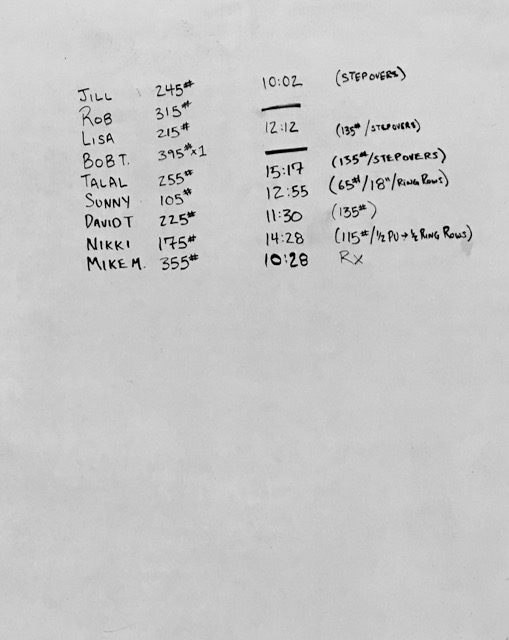 JILL 245# 10:02 (STEPOVERS)
ROB 315# —
LISA 215# 12:12 (135#/STEPOVERS)
BOB T. 395#x1 —
TALAL 255# 15:17 (135#/STEPOVERS)
SUNNY 105# 12:55 (65#/18"/RING ROWS)
DAVID T 225# 11:30 (135#)
NIKKI 175# 14:28 (115#/½ PU→½ RING ROWS)
MIKE M. 355# 10:28 Rx